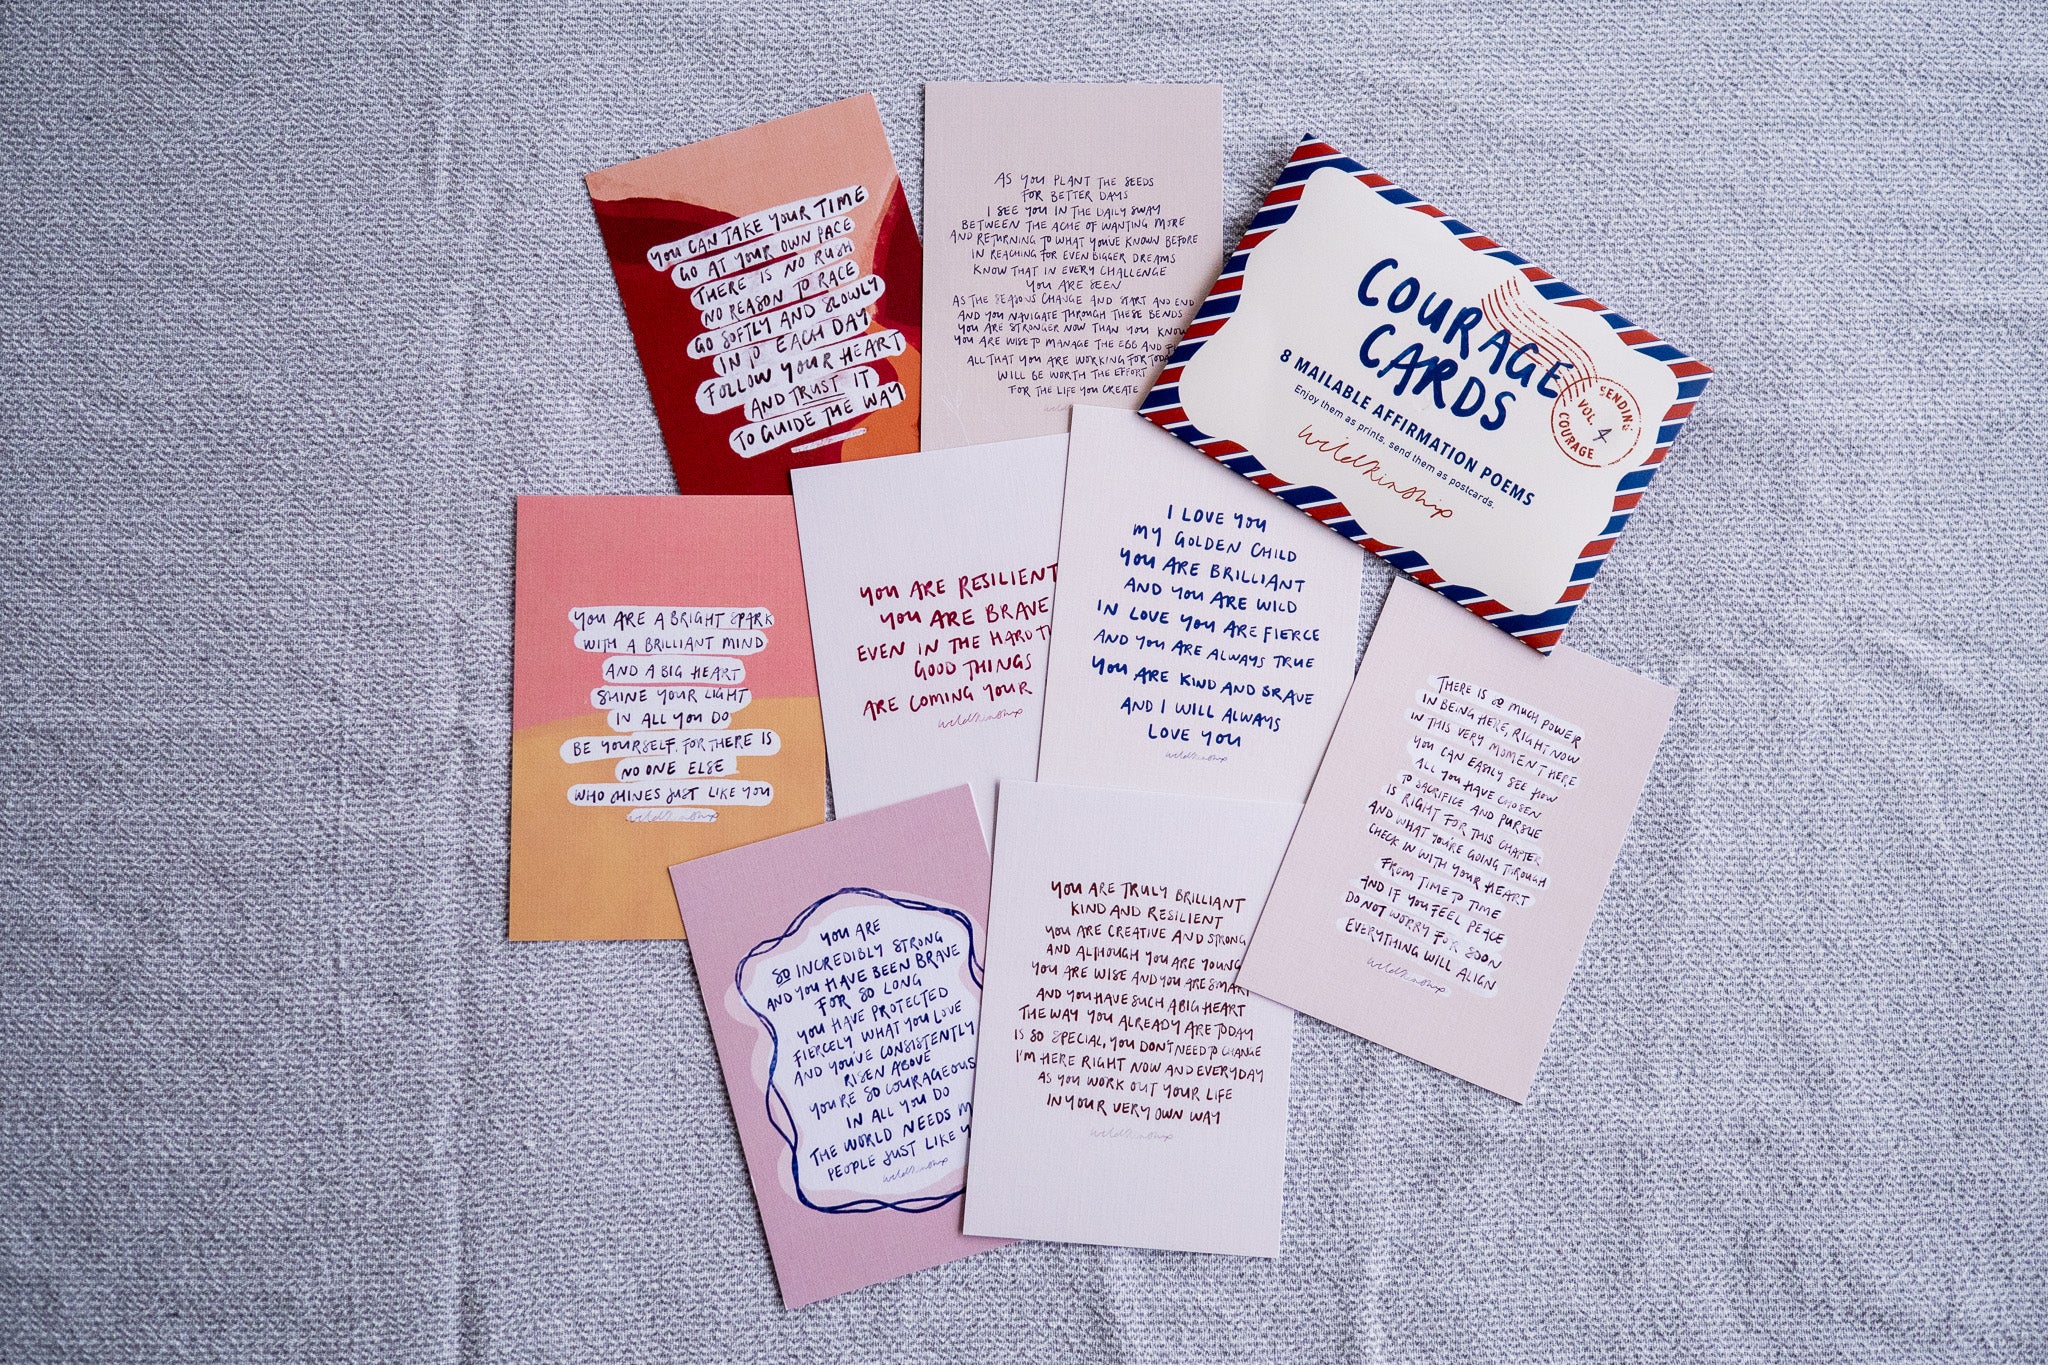 YOU CAN TAKE YOUR TIME
GO AT YOUR OWN PACE
THERE IS NO RUSH
NO REASON TO RACE
GO SOFTLY AND SLOWLY
INTO EACH DAY
FOLLOW YOUR HEART
AND TRUST IT
TO GUIDE THE WAY
AS YOU PLANT THE SEEDS
FOR BETTER DAYS
I SEE YOU IN THE DAILY SWAY
BETWEEN THE ACHE OF WANTING MORE
AND RETURNING TO WHAT YOU'VE KNOWN BEFORE
IN REACHING FOR EVEN BIGGER DREAMS
KNOW THAT IN EVERY CHALLENGE
YOU ARE SEEN
AS THE SEASONS CHANGE AND START AND END
AND YOU NAVIGATE THROUGH THESE BENDS
YOU ARE STRONGER NOW THAN YOU KNOW
YOU ARE WISE TO MANAGE THE EBB AND
ALL THAT YOU ARE WORKING FOR TODA
WILL BE WORTH THE EFFORT
FOR THE LIFE YOU CREATE
COURAGE
CARDS
8 MAILABLE AFFIRMATION POEMS
Enjoy them as prints, send them as postcards.
wildkinship
SENDING
VOL. 4
COURAGE
YOU ARE A BRIGHT SPARK
WITH A BRILLIANT MIND
AND A BIG HEART
SHINE YOUR LIGHT
IN ALL YOU DO
BE YOURSELF, FOR THERE IS
NO ONE ELSE
WHO SHINES JUST LIKE YOU
wildkinship
YOU ARE RESILIENT
YOU ARE BRAVE
EVEN IN THE HARD T
GOOD THINGS
ARE COMING YOUR
wildkinship
I LOVE YOU
MY GOLDEN CHILD
YOU ARE BRILLIANT
AND YOU ARE WILD
IN LOVE YOU ARE FIERCE
AND YOU ARE ALWAYS TRUE
YOU ARE KIND AND BRAVE
AND I WILL ALWAYS
LOVE YOU
wildkinship
THERE IS SO MUCH POWER
IN BEING HERE, RIGHT NOW
IN THIS VERY MOMENT HERE
YOU CAN EASILY SEE HOW
ALL YOU HAVE CHOSEN
TO SACRIFICE AND PURSUE
IS RIGHT FOR THIS CHAPTER
AND WHAT YOU'RE GOING THROUGH
CHECK IN WITH YOUR HEART
FROM TIME TO TIME
AND IF YOU FEEL PEACE
DO NOT WORRY FOR SOON
EVERYTHING WILL ALIGN
wildkinship
YOU ARE
SO INCREDIBLY STRONG
AND YOU HAVE BEEN BRAVE
FOR SO LONG
YOU HAVE PROTECTED
FIERCELY WHAT YOU LOVE
AND YOU'VE CONSISTENTLY
RISEN ABOVE
YOU'RE SO COURAGEOUS
IN ALL YOU DO
THE WORLD NEEDS M
PEOPLE JUST LIKE Y
wildkinship
YOU ARE TRULY BRILLIANT
KIND AND RESILIENT
YOU ARE CREATIVE AND STRONG
AND ALTHOUGH YOU ARE YOUNG
YOU ARE WISE AND YOU ARE SMART
AND YOU HAVE SUCH A BIG HEART
THE WAY YOU ALREADY ARE TODAY
IS SO SPECIAL, YOU DON'T NEED TO CHANGE
I'M HERE RIGHT NOW AND EVERYDAY
AS YOU WORK OUT YOUR LIFE
IN YOUR VERY OWN WAY
wildkinship